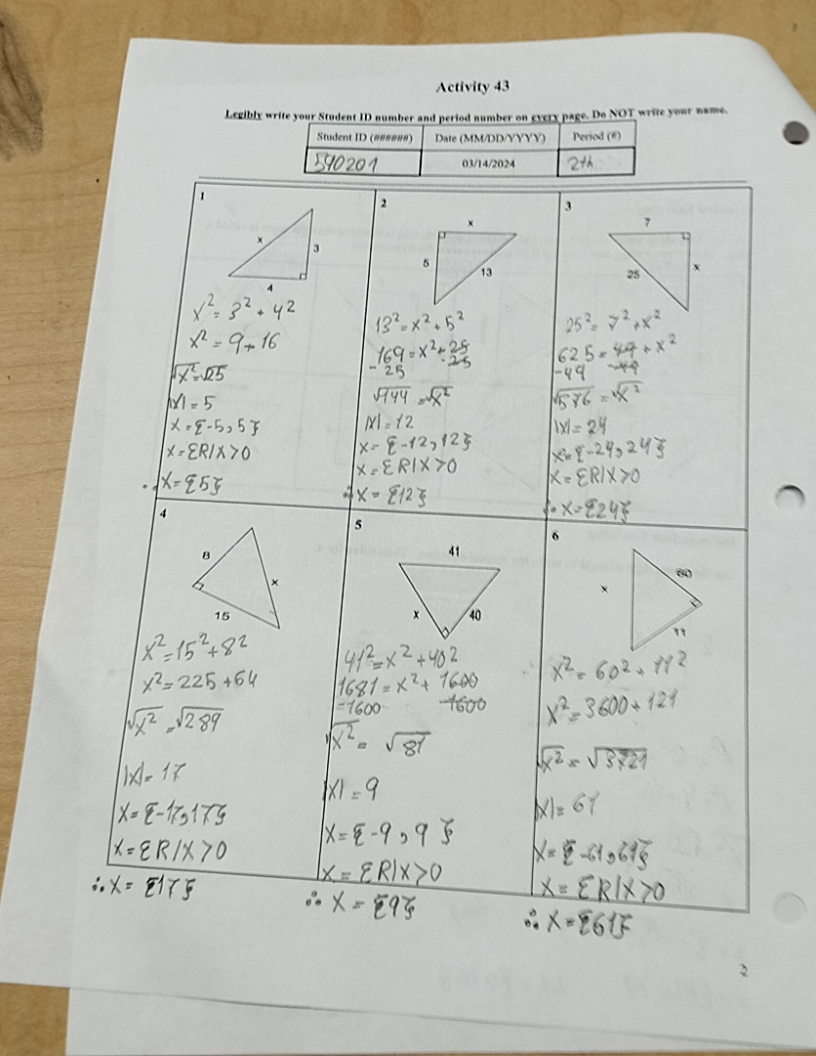 Activity 43
Legibly write your Student ID number and period number on every page. Do NOT write your name.
Student ID (######) Date (MM/DD/YYYY) Period (#)
590201 03/14/2024 2th
1
x
3
4
x² = 3² + 4²
x² = 9 + 16
√x² = √25
|x| = 5
x = {-5, 5}
x = ER/x>0
∴ x = {5}
2
x
5
13
13² = x² + 5²
169 = x² + 25
-25 -25
√144 = √x²
|x| = 12
x = {-12, 12}
x = ER/x>0
∴ x = {12}
3
7
25
x
25² = 7² + x²
625 = 49 + x²
-49 -49
√576 = √x²
|x| = 24
x = {-24, 24}
x = ER/x>0
∴ x = {24}
4
8
x
15
x² = 15² + 8²
x² = 225 + 64
√x² = √289
|x| = 17
x = {-17, 17}
x = ER/x>0
∴ x = {17}
5
41
x
40
41² = x² + 40²
1681 = x² + 1600
-1600 -1600
√x² = √81
|x| = 9
x = {-9, 9}
x = ER/x>0
∴ x = {9}
6
60
x
11
x² = 60² + 11²
x² = 3600 + 121
√x² = √3721
|x| = 61
x = {-61, 61}
x = ER/x>0
∴ x = {61}
2